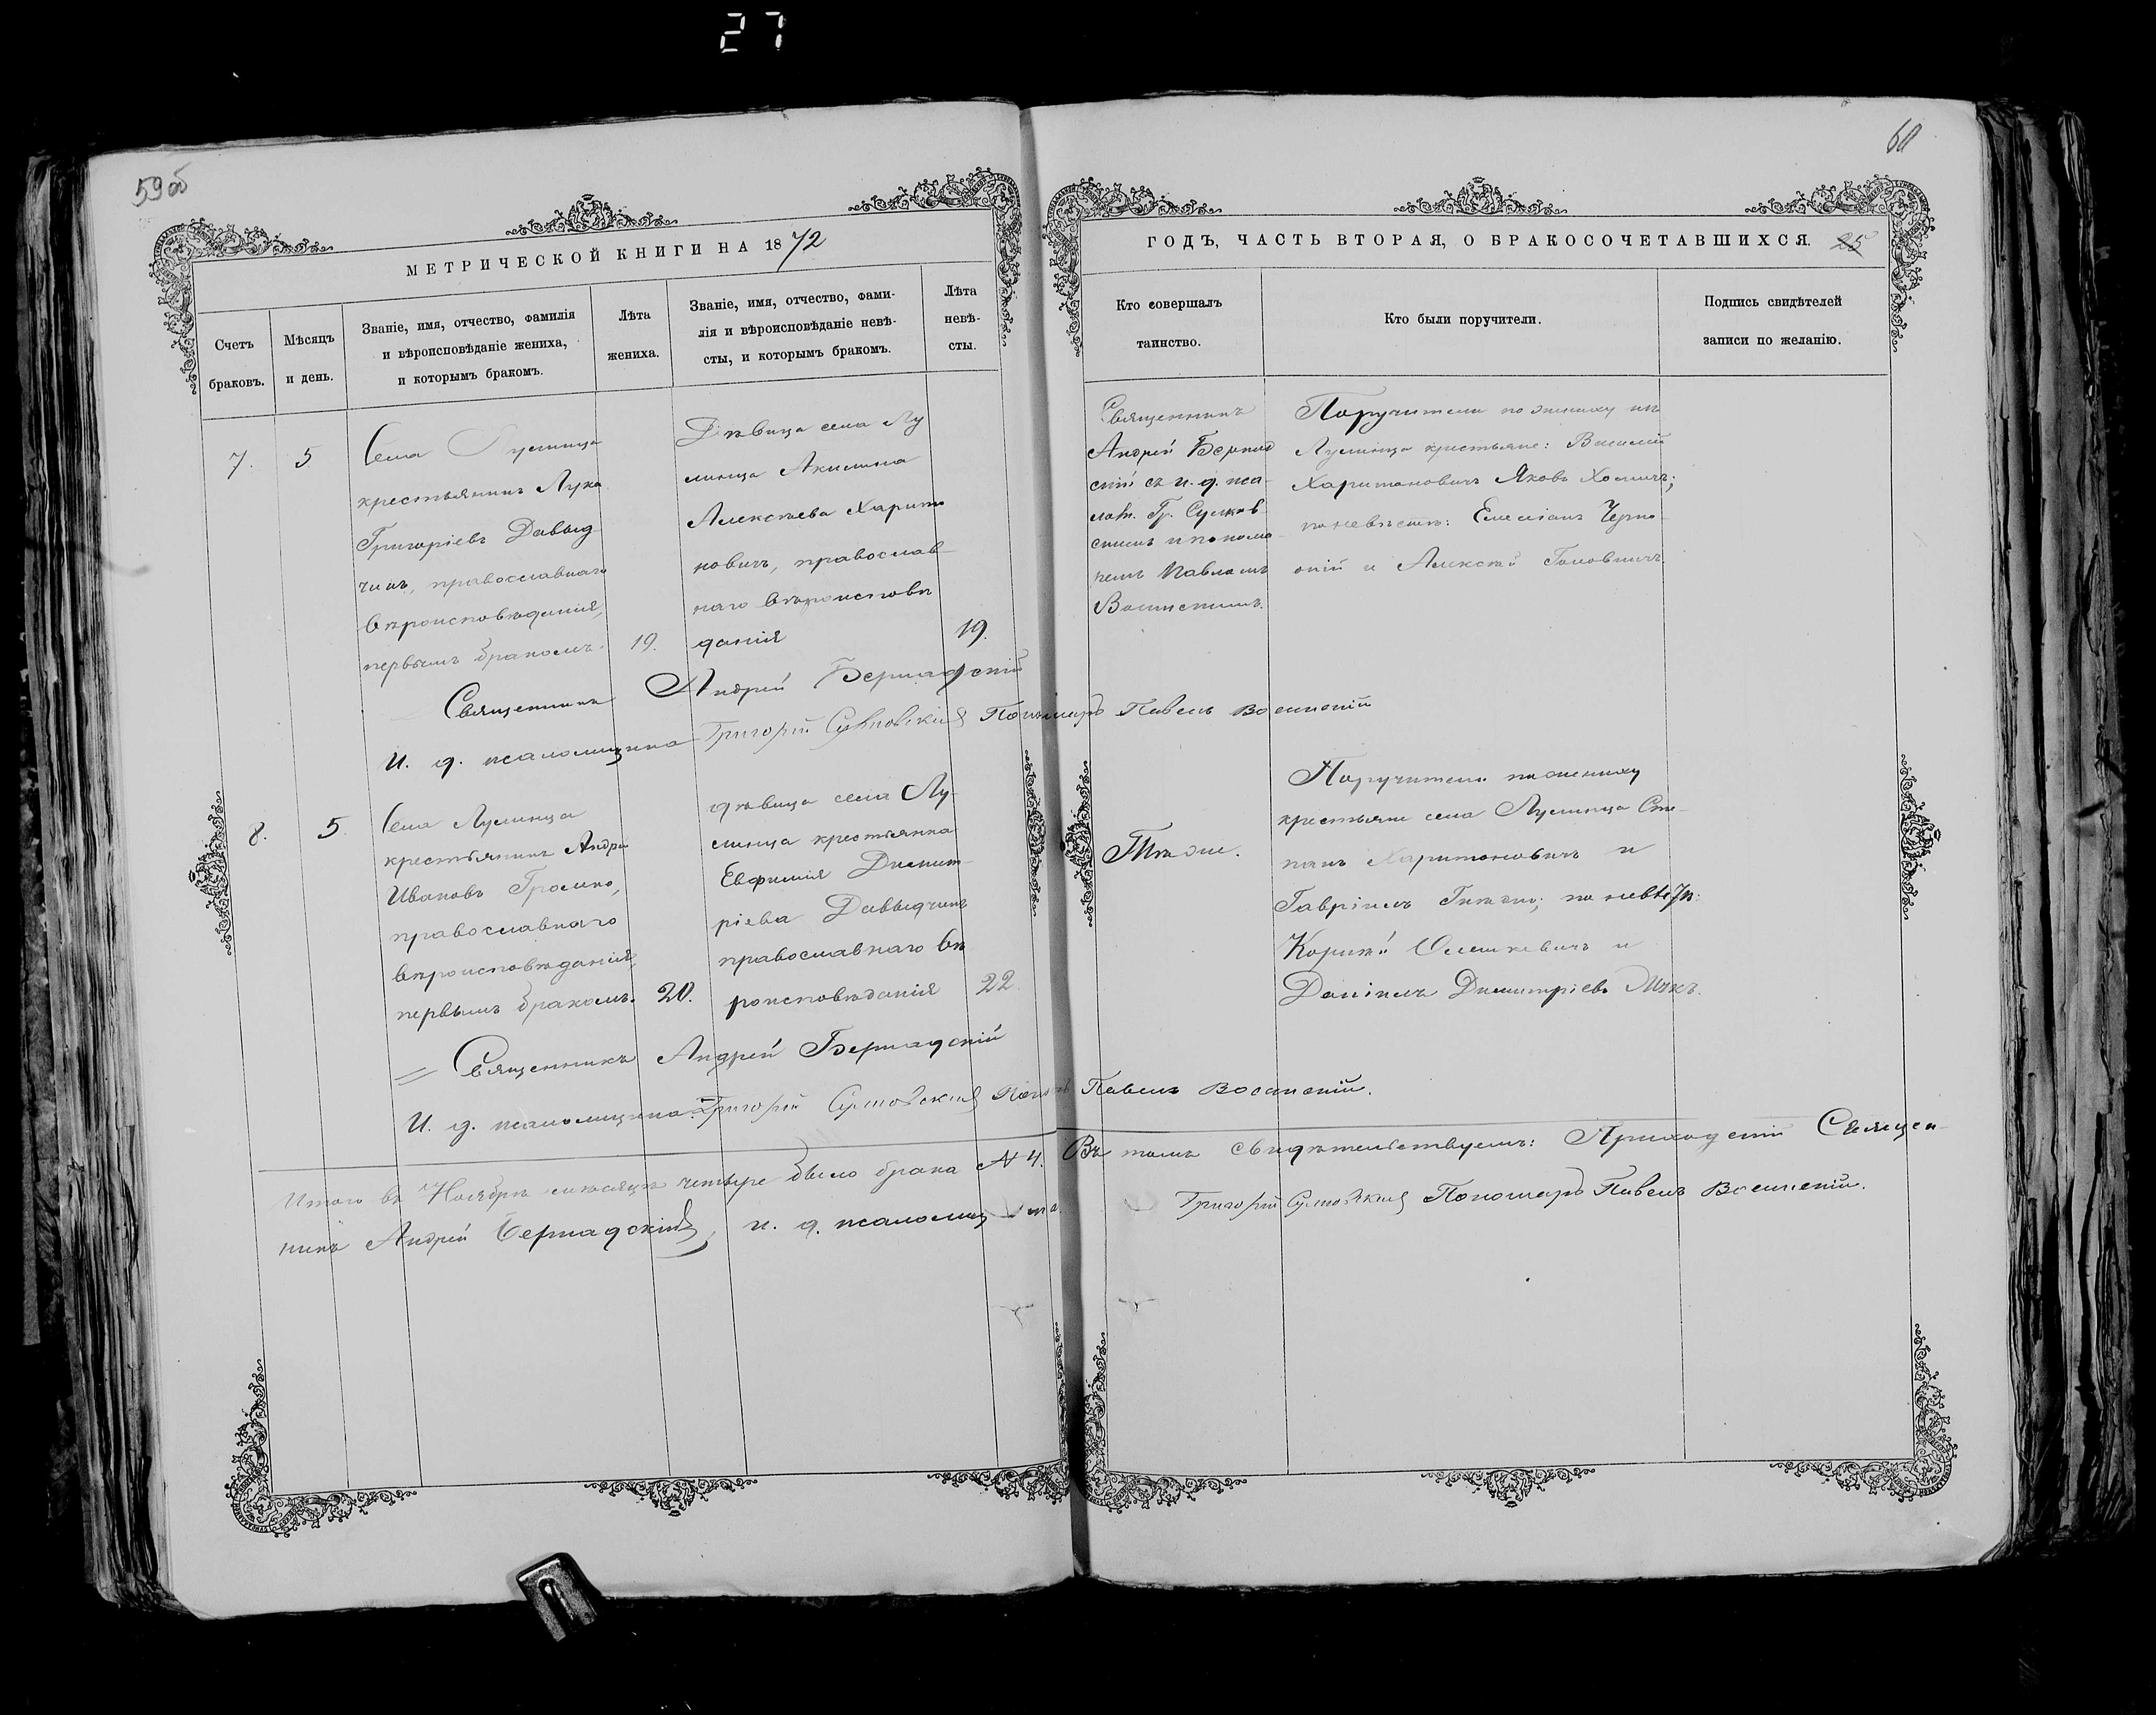 27
59об
60
МЕТРИЧЕСКОЙ КНИГИ НА 1872
ГОДЪ, ЧАСТЬ ВТОРАЯ, О БРАКОСОЧЕТАВШИХСЯ. 25
Счетъ
браковъ.
Мѣсяцъ
и день.
Званіе, имя, отчество, фамилія
и вѣроисповѣданіе жениха,
и которымъ бракомъ.
Лѣта
жениха.
Званіе, имя, отчество, фами-
лія и вѣроисповѣданіе невѣ-
сты, и которымъ бракомъ.
Лѣта
невѣ-
сты.
Кто совершалъ
таинство.
Кто были поручители.
Подпись свидѣтелей
записи по желанію.
7.
5
Села Лунинца
крестьянинъ Лука
Григоріевъ Давыд
чикъ, православнаго
вѣроисповѣданія,
первымъ бракомъ.
19.
Дѣвица села Лу
нинца Акилина
Алексѣева Харито
новичъ, православ-
наго вѣроисповѣ
данія
19.
Священникъ
Андрей Бернад
скій съ и. д. пса-
лом. Гр.
скимъ и понома-
ремъ Павломъ
Поручители по жениху
Лунинца крестьяне: Василій
Харитоновичъ Яковъ Хомичъ;
по невѣстѣ: Емеліанъ Черно-
окій и Алексѣй Головничъ
Священникъ Андрей Бернадскій
И. д. псаломщика Григорій Пономарь Павелъ
8.
5.
Села Лунинца
крестьянинъ Андрей
Ивановъ Громко,
православнаго
вѣроисповѣданія,
первымъ бракомъ.
20.
дѣвица села Лу-
нинца крестьянка
Евфимія Димит-
ріева Давыдчикъ
православнаго вѣ
роисповѣданія
22.
Тѣже.
Поручители по жениху
крестьяне села Лунинца Сте-
панъ Харитоновичъ и
Гавріилъ по невѣстѣ:
Корнѣй Олешкевичъ и
Даніилъ Димитріевъ
= Священникъ Андрей Бернадскій
И. д. псаломщика Григорій Павелъ
Итого въ Ноябрѣ мѣсяцѣ четыре было брака № 4. Въ томъ свидѣтельствуемъ: Приходскій Священ-
никъ Андрей Бернадскій, и. д. псаломщика Григорій Пономарь Павелъ